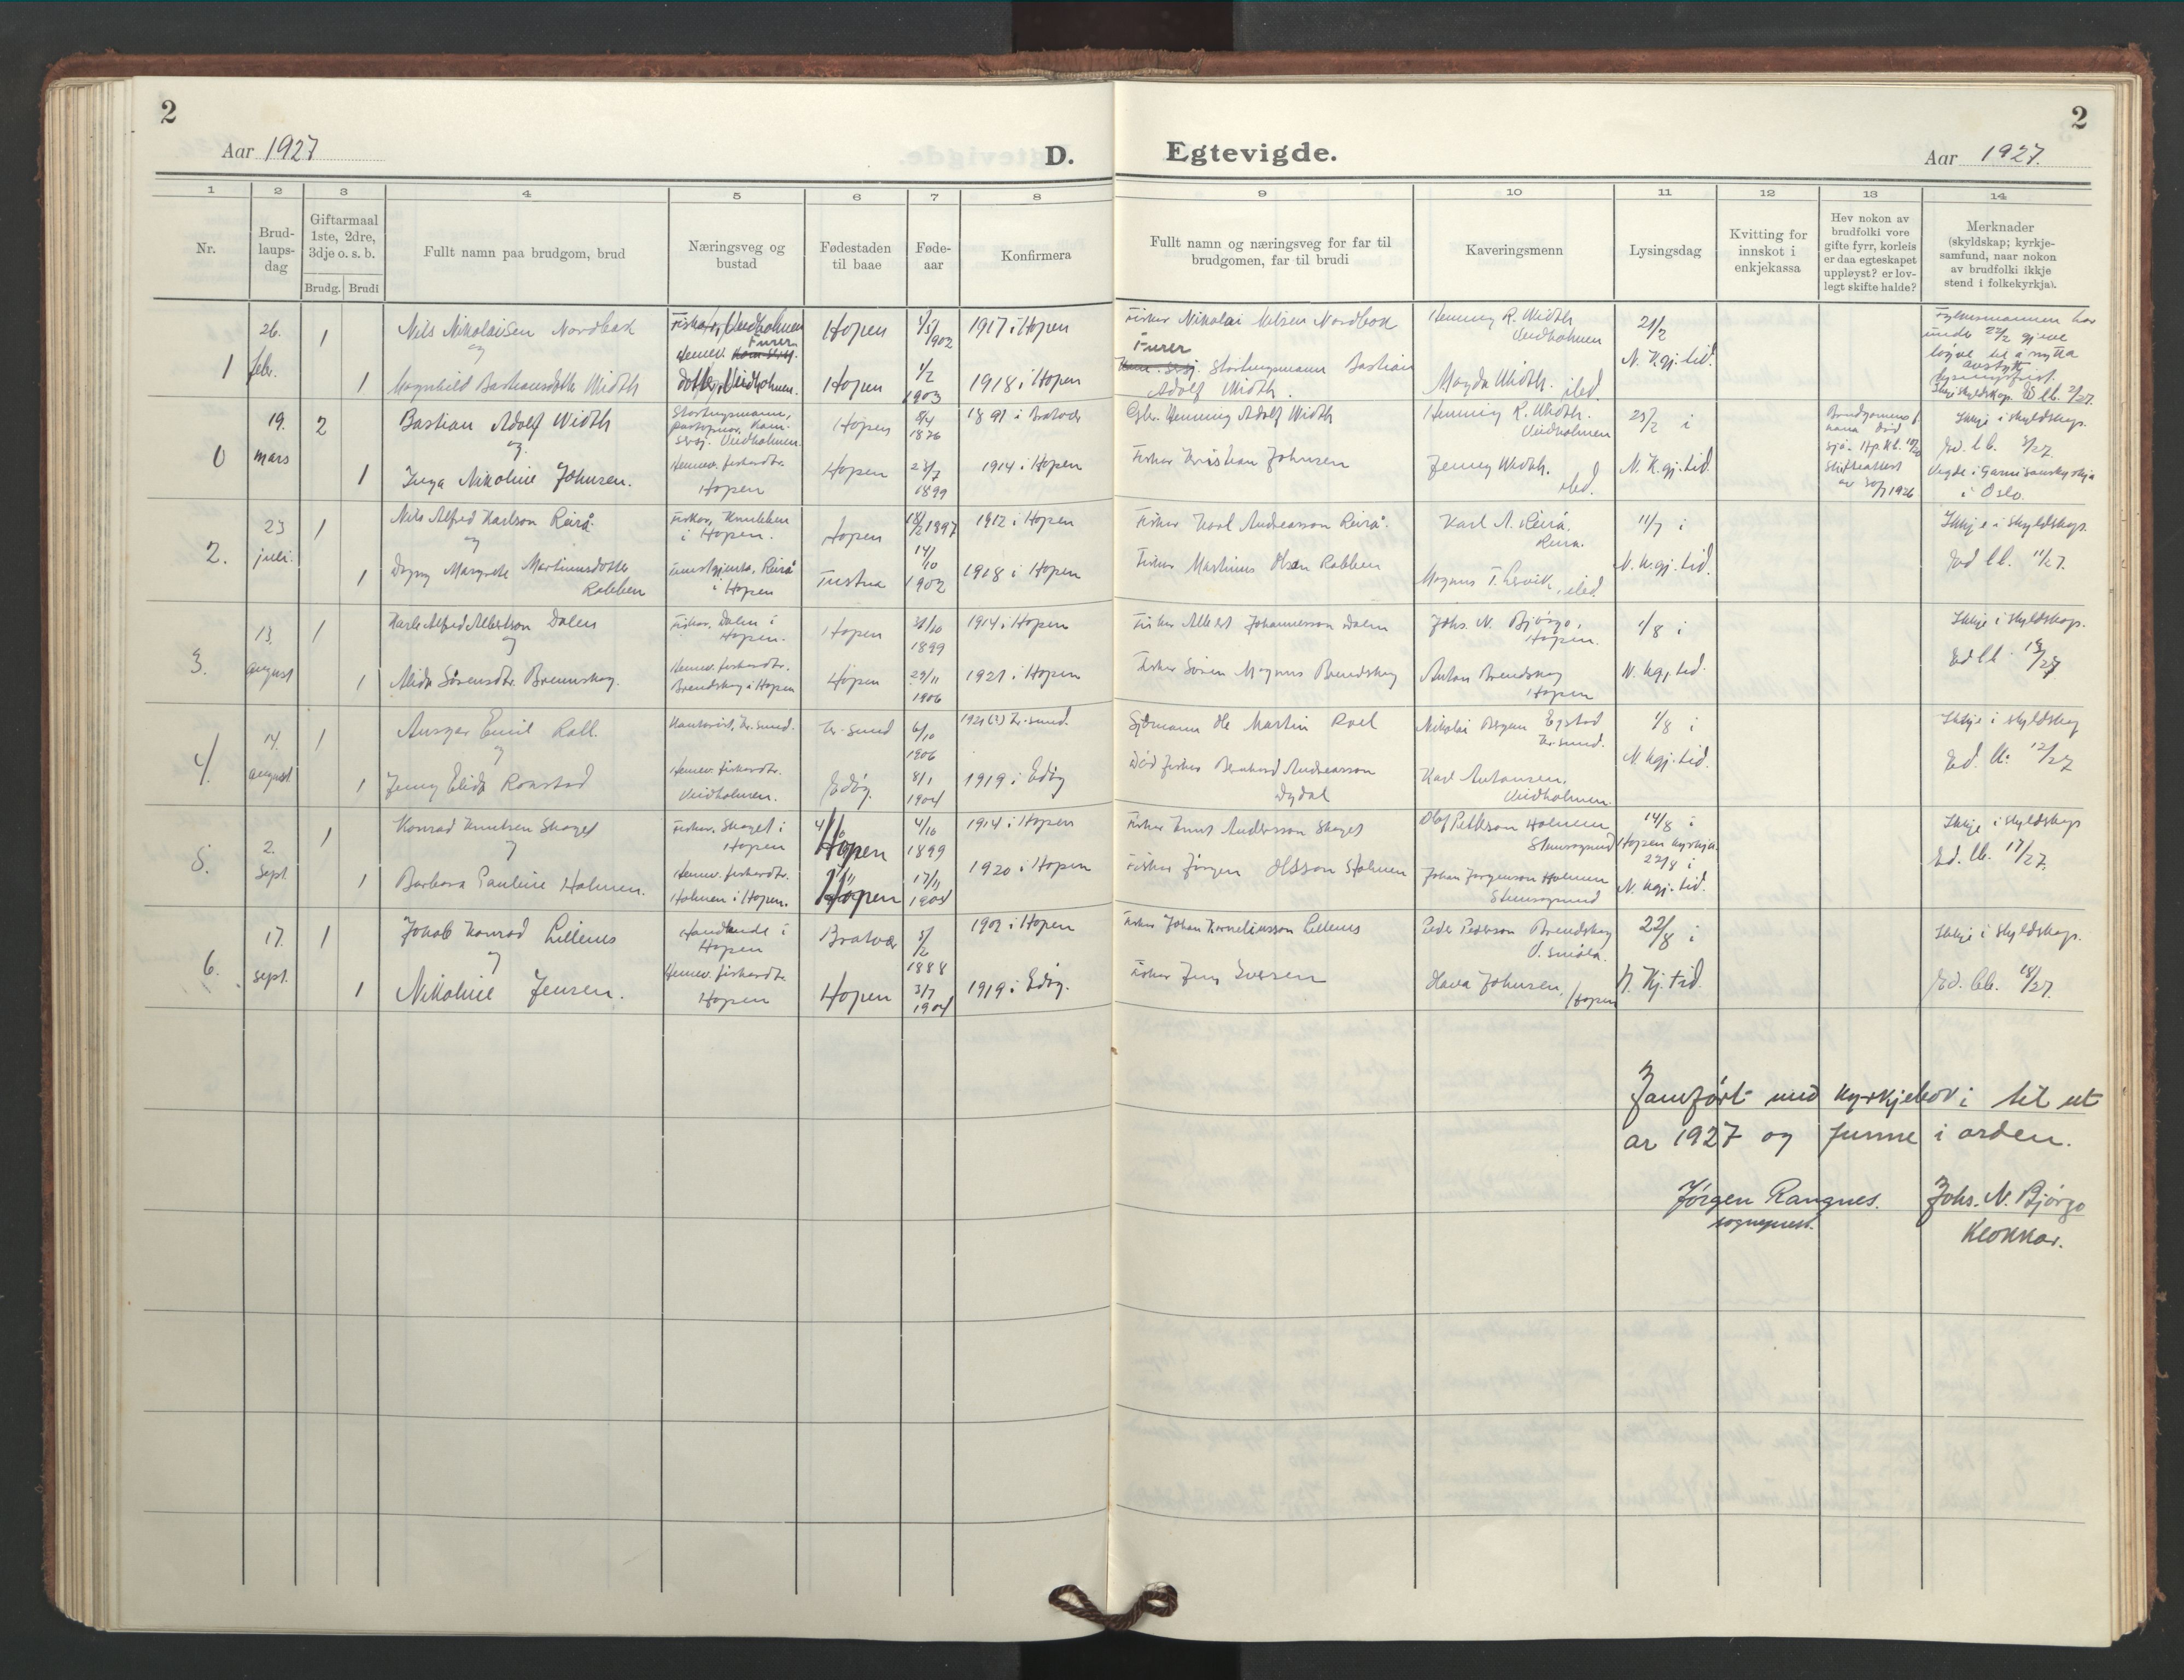 2
Aar 1927
D.
Egtevigde.
Aar 1927.
2
1 2 3 4 5 6 7 8 9 10 11 12 13 14
Nr.
Brud-
laups-
dag
Giftarmaal
1ste, 2dre,
3dje o. s. b.
Brudg. Brudi
Fullt namn paa brudgom, brud
Næringsveg og
bustad
Fødestaden
til baae
Føde-
aar
Konfirmera
Fullt namn og næringsveg for far til
brudgomen, far til brudi
Kaveringsmenn
Lysingsdag
Kvitting for
innskot i
enkjekassa
Hev nokon av
brudfolki vore
gifte fyrr, korleis
er daa egteskapet
uppløyst? er lov-
legt skifte halde?
Merknader
(skyldskap; kyrkje-
samfund, naar nokon
av brudfolki ikkje
stend i folkekyrkja).
1
26. febr.
1 Nils Nikolaisen Nordbak Fiskar, Veidholmen Hopen 1902 1917 i Hopen Fiskar Nikolai Nilsen Nordbak Henning R. Width Veidholmen 21/2
og
1 Magnhild Bastiansdotter Width Furer dotter, Veidholmen. Hopen 1/2 1903 1918 i Hopen Furer Stortingsmann Bastian Adolf Width. Magda Width. ibid. N. Kgj. tid.
Fylkesmannen har
under 22/2 gjeve
løyve til å nytta
avstytt
lysingsfrist.
0
19. mars
2 Bastian Adolf Width Stortingsmann, Veidholmen. Hopen 8/4 1876 1891 i Bratvær Gbr. Henning Adolf Width Henning R. Width. Veidholmen 23/2 i
og
1 Inga Nikoline Johnsen. Heimev. fiskardtr. Hopen Hopen 23/7 1899 1914 i Hopen Fiskar Kristian Johnsen Jenny Width. ibid. N. K.gj. tid.
Brudgomens f.
kona død
Skifteattest
av 30/7 1926
Ikkje i skyldskap.
Vigde i Garnisonskyrkja
i Oslo.
2.
23 juli.
1 Nils Alfred Karlson Reirå. Fiskar, i Hopen. Hopen 1897 1912 i Hopen Fiskar Karl Andreasson Reirå. Karl A. Reirå. Reirå. 11/7 i
og
1 Dagny Margrete Martinusdotter Rabben Reirå i Hopen Tustna 14/10 1902 1918 i Hopen Fiskar Martinus Olsen Rabben Magnus T. Lervik, ibid. N. K.gj. tid.
Ikkje i skyldskap.
Ed bb. 11/27.
3.
13. august
1 Karle Alfred Albertson Dalen Fiskar. Dalen i Hopen. Hopen 31/10 1899 1914 i Hopen Fiskar Albert Johannesson Dalen Johs. N. Bjørgo, Hopen. 1/8 i
og
1 Alida Sørensdtr. Bremnskag. Heimev. fiskardtr. Brendskag i Hopen Hopen 29/11 1906 1921 i Hopen Fiskar Søren Magnus Brendskag Anton Brendskag Hopen N. Kgj. tid.
Ikkje i skyldskap.
Ed bb. 13/27
4.
14. august
1 Ansgar Emil Roll. Kontorist, Kr.sund. Kr. sund 6/10 1906 1921(?) Kr.sund. Sjømann Ole Martin Roll Nikolai Bergan Egstad Kr.sund. 1/8 i
og
1 Jenny Elida Ronstad Heimev. fiskardtr. Veidholmen. Edøy 8/1 1904 1919 i Edøy Død fiskar Bernhard Andreasson Dydal Karl Antonsen. Veidholmen. N. Kgj. tid.
Ikkje i skyldskap
Ed. bb. 12/27
5.
2. Sept.
1 Konrad Knutsen Skaget Fiskar. Skaget i Hopen Hopen 4/10 1899 1914 i Hopen Fiskar Knut Andersson Skaget Olaf Petterson Holmen Steinsøysund 14/8 i Hopen kyrkja
og
1 Barbara Pauline Holmen. Heimev. fiskardtr. Holmen i Hopen. Hopen 17/11 1904 1920 i Hopen Fiskar Jørgen Olsson Holmen Johan Jørgenson Holmen Steinsøysund 22/8 i N. Kgj. tid.
Ikkje i skyldskap
Ed. bb. 17/27.
6.
17. sept.
1 Jakob Konrad Lillenes Handlande i Hopen Bratvær 5/2 1888 1902 i Hopen Fiskar Johan Korneliusson Lillenes Peder Pederson Brendskag V. Smøla. 22/8 i
og
1 Nikoline Jensen. Heimev. fiskardtr. Hopen Hopen 3/7 1904 1919 i Edøy. Fiskar Jens Iversen Hava Johnsen, Hopen N. Kj. tid.
Ikkje i skyldskap.
Ed. bb. 18/27.
Jamført med kyrkjebok i til ut
år 1927 og funne i orden.
Jørgen Rangnes. Johs. N. Bjørgo
sogneprest. Klokkar.